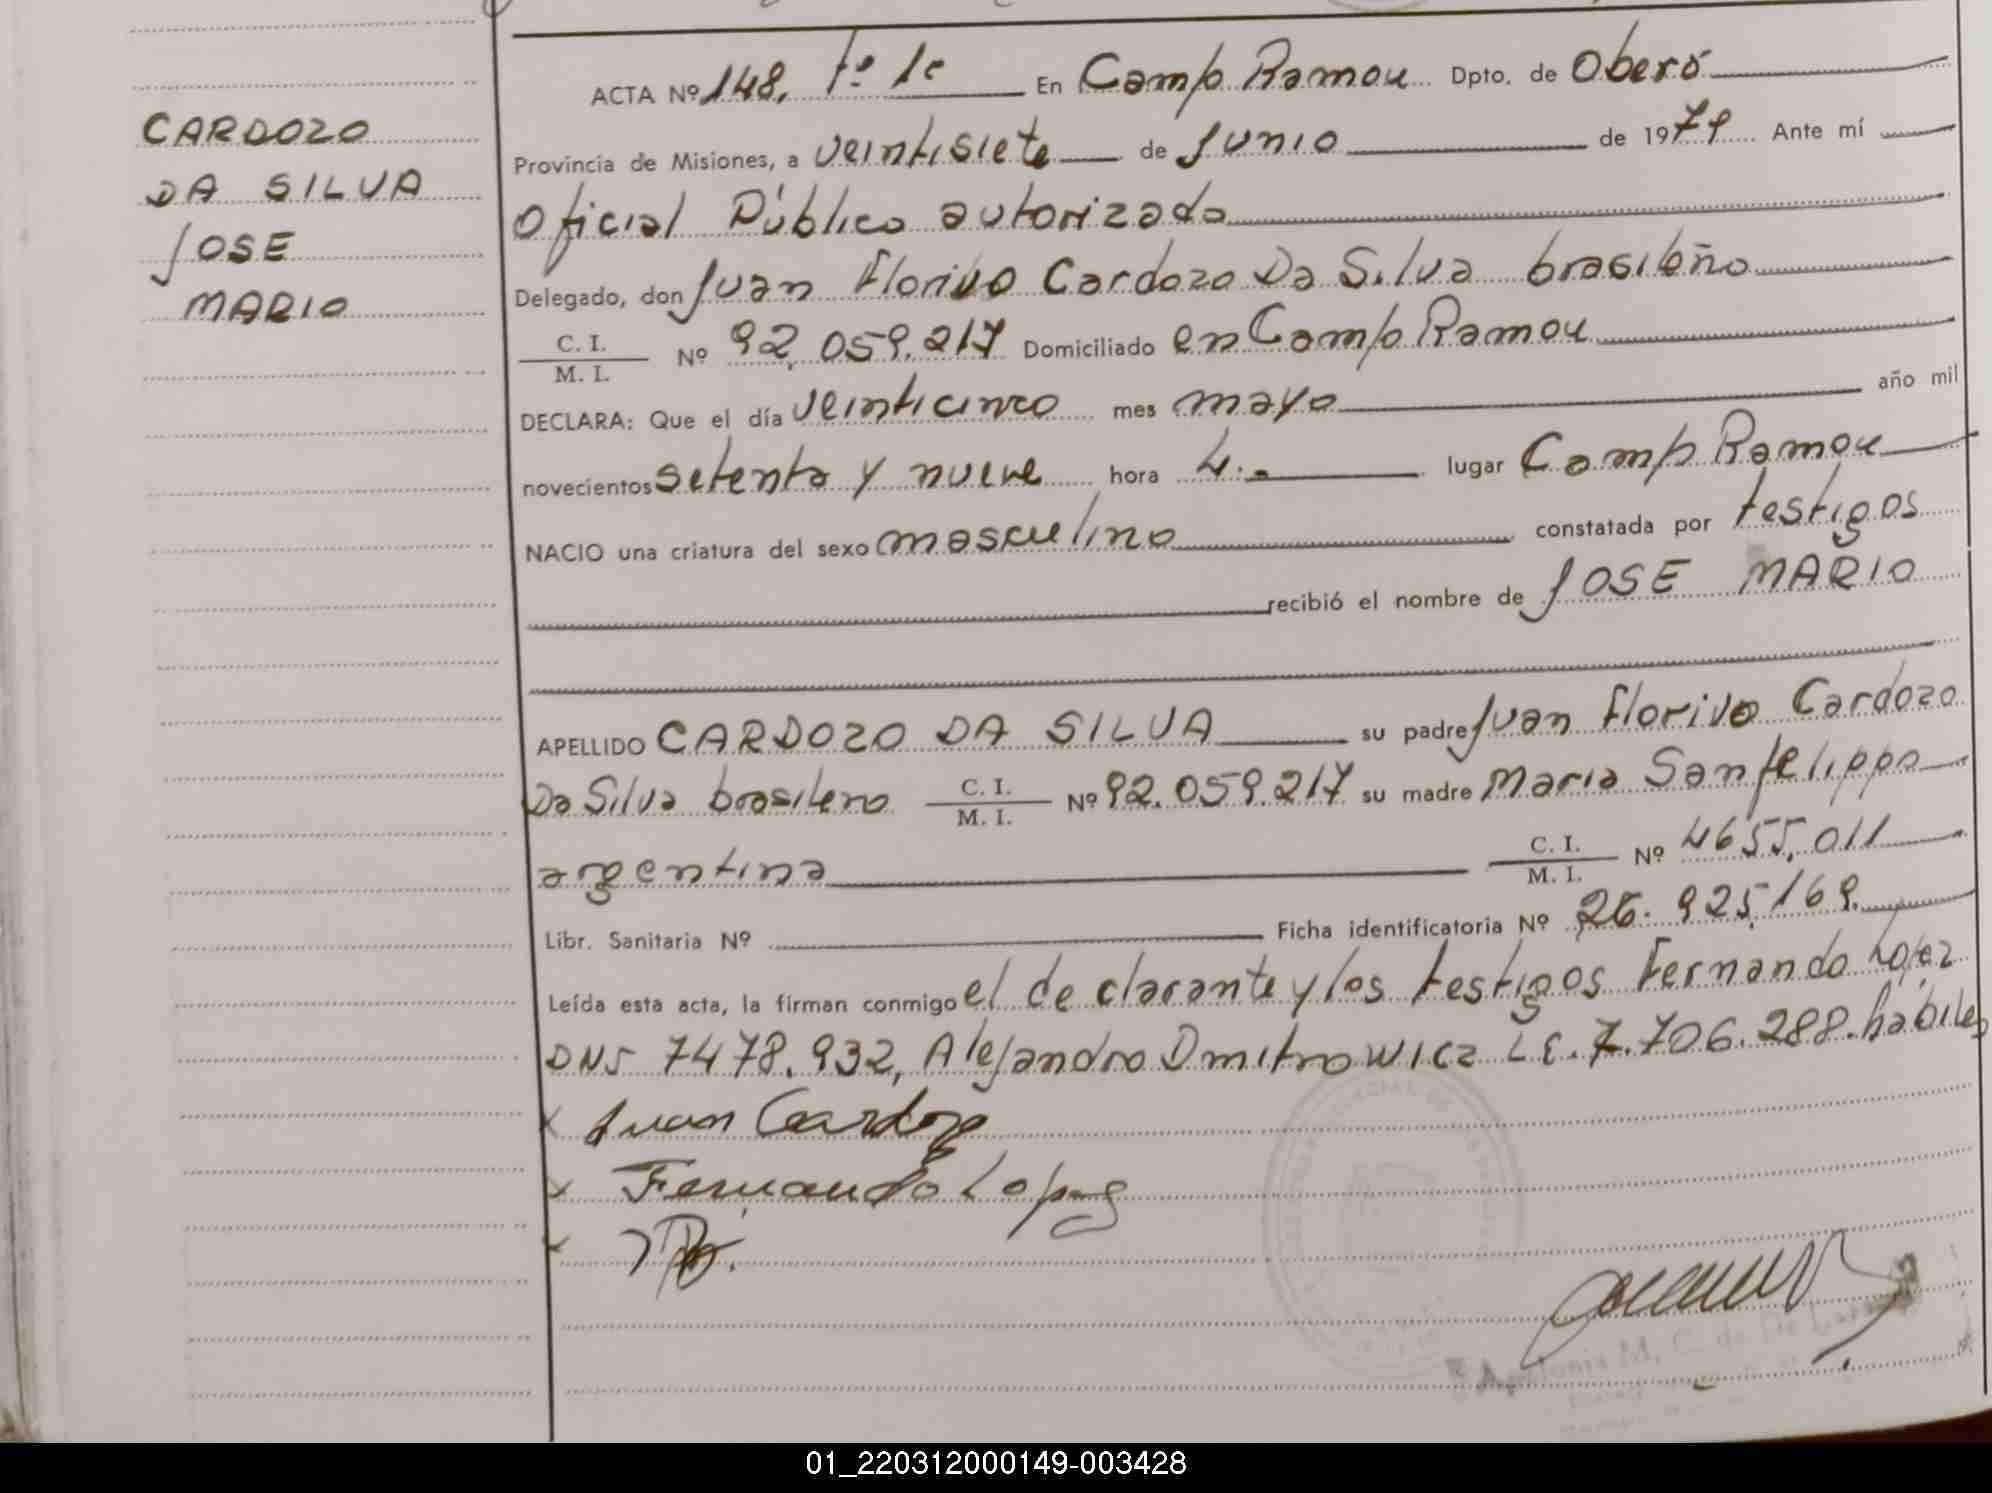 CARDOZO
DA SILVA
JOSE
MARIO
ACTA Nº 148. Tº 1º En Camp Ramon Dpto. de Oberá
Provincia de Misiones, a veintisiete de Junio de 1979 Ante mí
Oficial Público autorizado
Delegado, don Juan Florivo Cardozo Da Silva brasileño
C. I.
M. I. Nº 92.059.217 Domiciliado en Camp Ramon
DECLARA: Que el día veinticinco mes mayo año mil
novecientos setenta y nueve hora 4.- lugar Camp Ramon
NACIO una criatura del sexo masculino constatada por testigos
recibió el nombre de JOSE MARIO
APELLIDO CARDOZO DA SILVA su padre Juan Florivo Cardozo
Da Silva brasilero C. I. M. I. Nº 92.059.217 su madre Maria Sanfelippo
argentina C. I. M. I. Nº 4655.011
Libr. Sanitaria Nº Ficha identificatoria Nº 26.925,169.
Leída esta acta, la firman conmigo el declarante y los testigos Fernando Lopez
DNI 7478.932, Alejandro Dmitrowicz LE. 7.706.288. habiles
x Juan Cardozo
x Fernando Lopez
x
M. C. de De
01_220312000149-003428